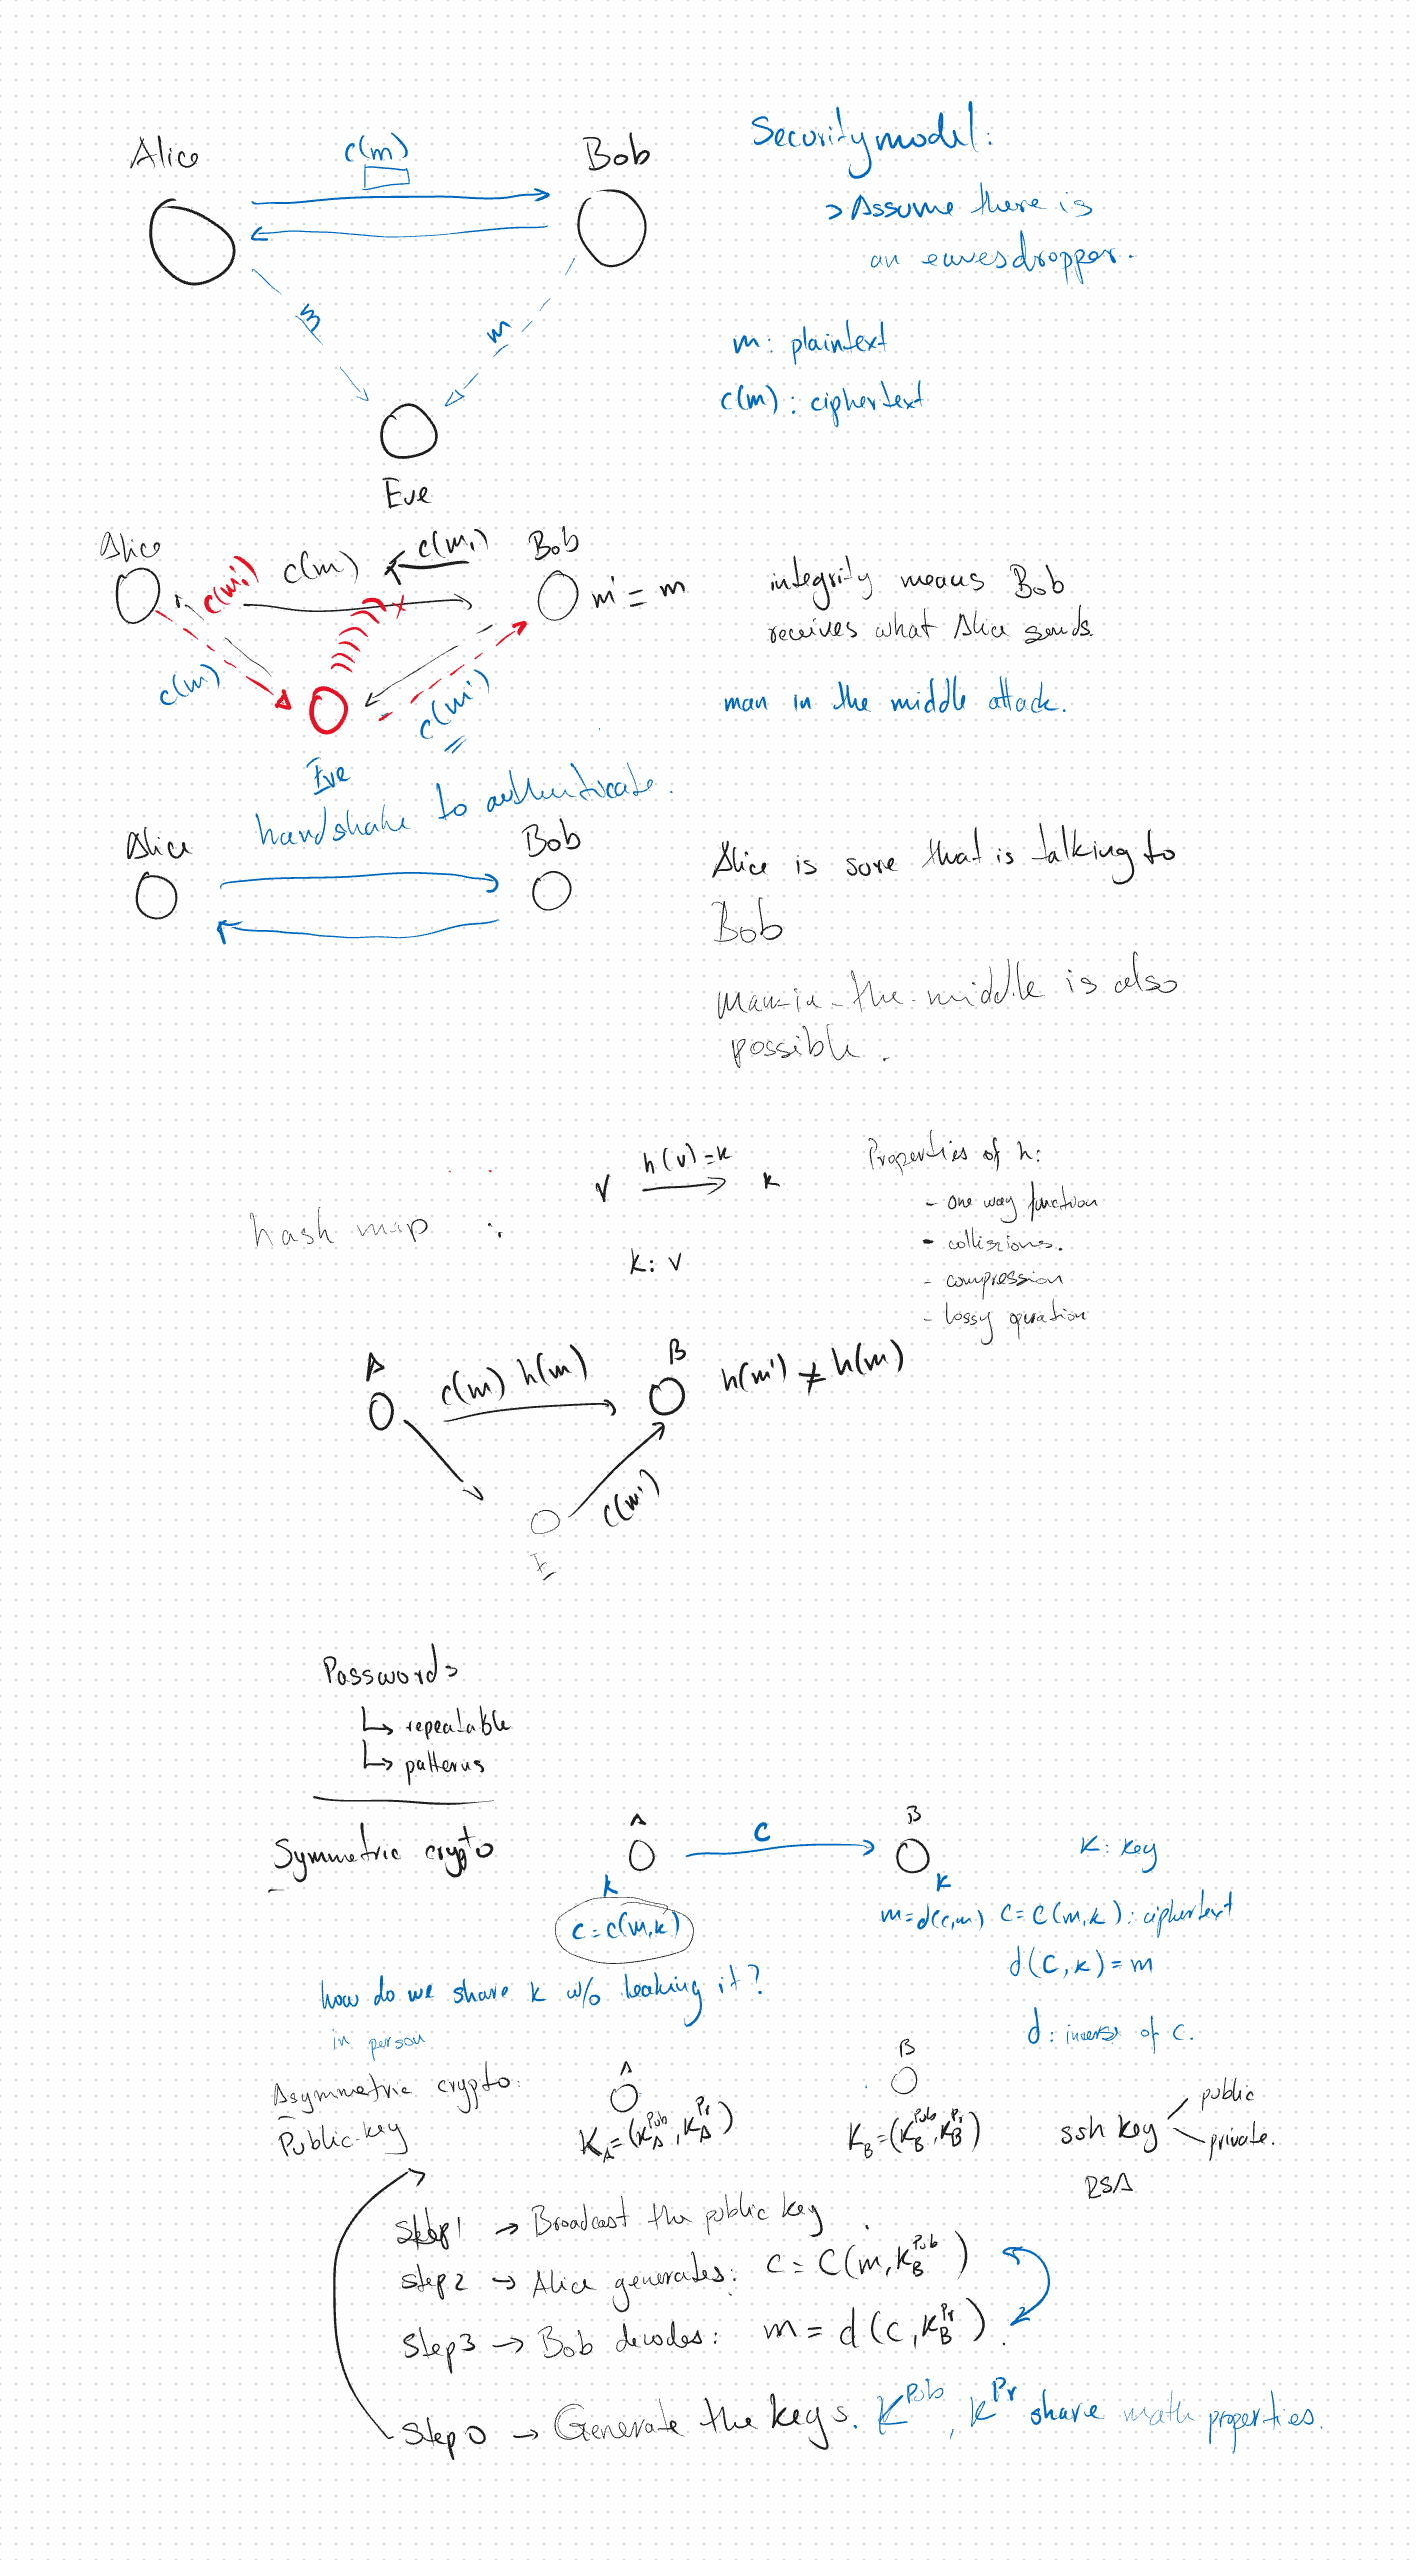 Alice
c(m)
Bob
Security model:
> Assume there is
an eavesdropper.
m
m
m: plaintext
c(m): ciphertext
Eve
Alice
c(m')
c(m)
c(m,)
Bob
m' = m
integrity means Bob
receives what Alice sends
c(m)
c(m')
man in the middle attack.
Eve
handshake to authenticate.
Alice
Bob
Alice is sure that is talking to
Bob
man-in-the-middle is also
possible.
v
h(v)=k
k
Properties of h:
- one way function
- collisions.
- compression
- lossy operation
hash map :
k: v
A
c(m) h(m)
B
h(m') ≠ h(m)
c(m')
E
Passwords
↳ repeatable
↳ patterns
Symmetric crypto
A
C
B
K: key
k
k
c = c(m,k)
m=d(c,m)
C = C(m,k): ciphertext
d(C,k) = m
how do we share k w/o leaking it?
in person
d: inverse of c.
Asymmetric crypto:
Public-key
A
B
K_A=(K_A^Pub, K_A^Pr)
K_B=(K_B^Pub, K_B^Pr)
ssh key
public
private.
RSA
Step1 → Broadcast the public key
step2 → Alice generates: C = C(m, K_B^Pub)
Step3 → Bob decodes: m = d(c, K_B^Pr)
Step0 → Generate the keys. K^Pub, K^Pr share math properties.